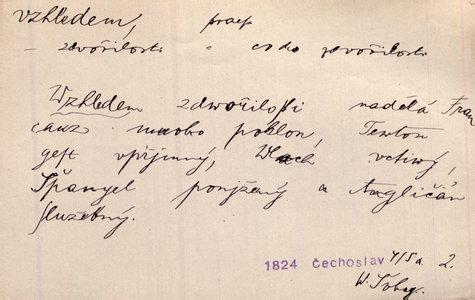 vzhledem, praep
– zdvořilosti = co do zdvořilosti
Wzhledem zdwořilosti nadělá Fran
cauz mnoho poklon, Teuton
gest vpřjmný, Wlach vctiwý,
Španyel ponjžený a Angličan
služebný.
1824 Čechoslav 4/5 a. 2.
W.